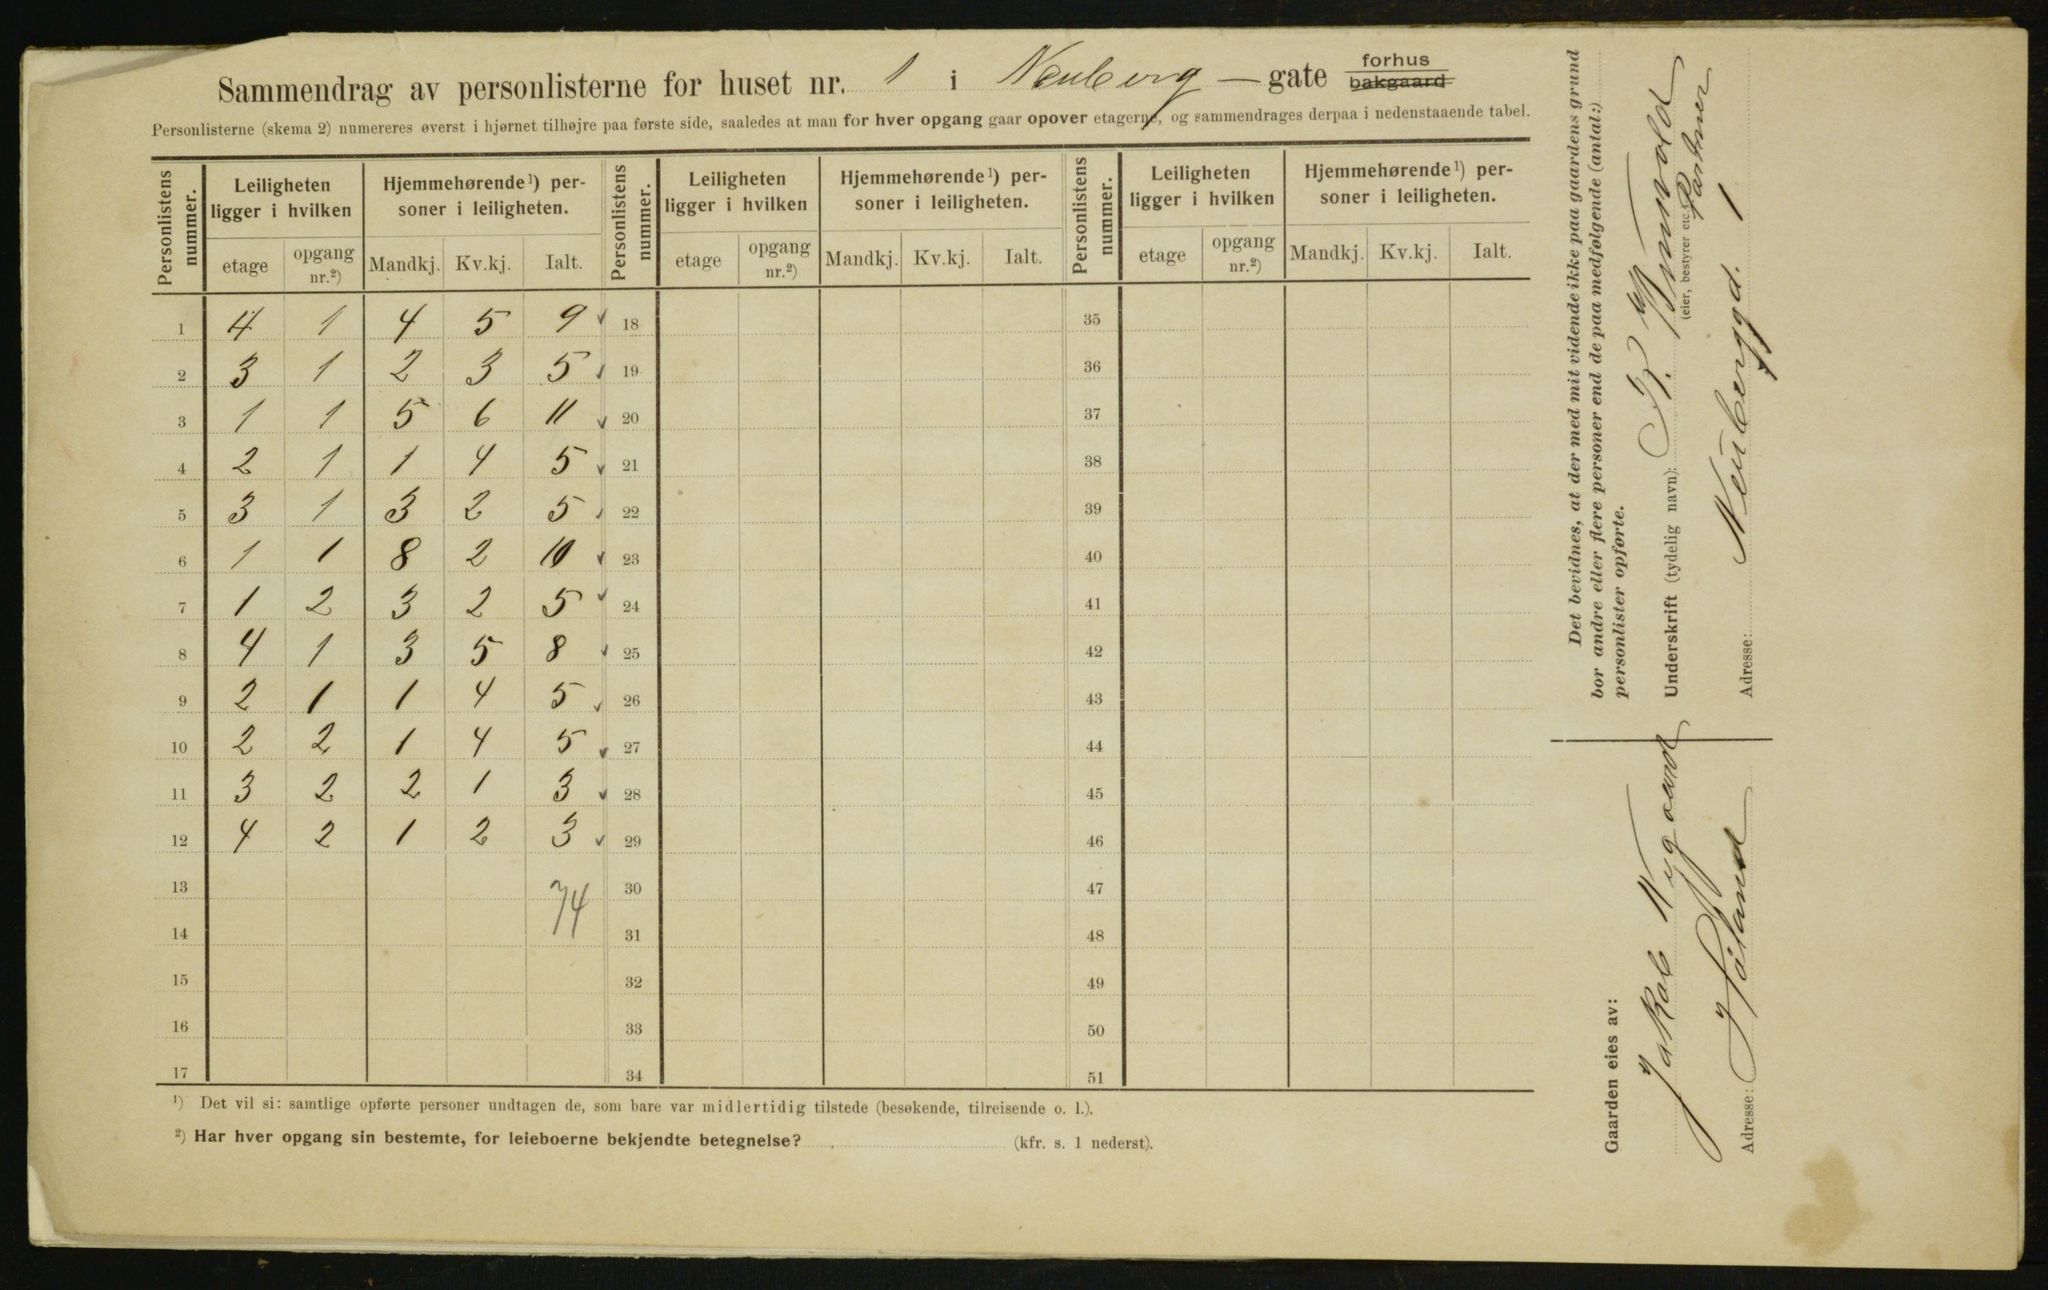 Sammendrag av personlisterne for huset nr. 1 i Neuberg — gate forhus bakgaard
Personlisterne (skema 2) numereres øverst i hjørnet tilhøjre paa første side, saaledes at man for hver opgang gaar opover etagerne, og sammendrages derpaa i nedenstaaende tabel.
Personlistens nummer. Leiligheten ligger i hvilken Hjemmehørende¹) personer i leiligheten. Personlistens nummer. Leiligheten ligger i hvilken Hjemmehørende¹) personer i leiligheten. Personlistens nummer. Leiligheten ligger i hvilken Hjemmehørende¹) personer i leiligheten.
etage opgang nr.²) Mandkj. Kv.kj. Ialt. etage opgang nr.²) Mandkj. Kv.kj. Ialt. etage opgang nr.²) Mandkj. Kv.kj. Ialt.
1 4 1 4 5 9 18 35
2 3 1 2 3 5 19 36
3 1 1 5 6 11 20 37
4 2 1 1 4 5 21 38
5 3 1 3 2 5 22 39
6 1 1 8 2 10 23 40
7 1 2 3 2 5 24 41
8 4 1 3 5 8 25 42
9 2 1 1 4 5 26 43
10 2 2 1 4 5 27 44
11 3 2 2 1 3 28 45
12 4 2 1 2 3 29 46
13 30 47
74
14 31 48
15 32 49
16 33 50
17 34 51
¹) Det vil si: samtlige opførte personer undtagen de, som bare var midlertidig tilstede (besøkende, tilreisende o. l.).
²) Har hver opgang sin bestemte, for leieboerne bekjendte betegnelse? (kfr. s. 1 nederst).
Det bevidnes, at der med mit vidende ikke paa gaardens grund
bor andre eller flere personer end de paa medfølgende (antal:)
personlister opførte.
Underskrift (tydelig navn):
(eier, bestyrer etc.)
Adresse: Neuberggd. 1
Gaarden eies av:
Jakob Nygaard
Adresse: